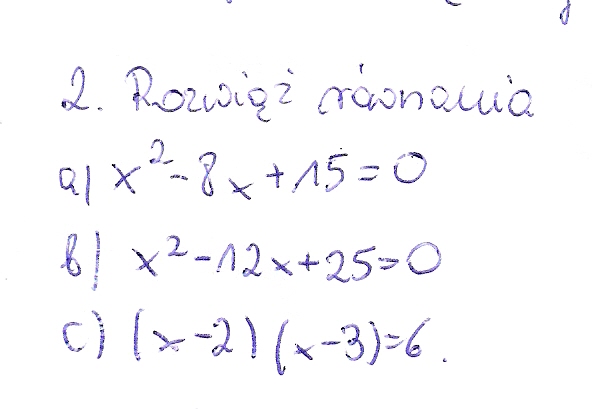 2. Rozwiąż równania
a) x²-8x+15=0
b) x²-12x+25=0
c) (x-2)(x-3)=6.